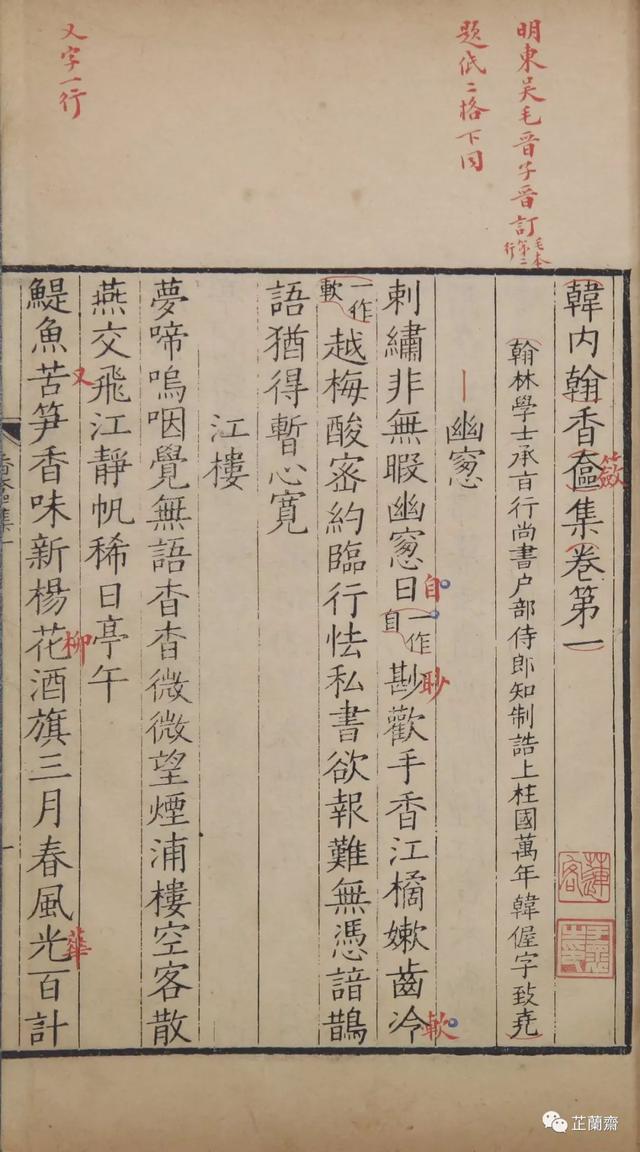 明東吳毛晉子晉訂毛本第二行
題低二格下同
又字一行
韓內翰香奩集卷第一
籢
翰林學士承旨行尚書户部侍郎知制誥上柱國萬年韓偓字致堯
幽窻
刺繡非無暇幽窻日一作自尠歡手香江橘嫰齒冷
自
尟
軟
一作軟越梅酸宻約臨行怯私書欲報難無憑諳鵲
語猶得暫心寛
江樓
夢啼嗚咽覺無語杳杳微微望煙浦樓空客散
燕交飛江靜帆稀日亭午
又
鯷魚苦笋香味新楊花酒旗三月春風光百計
柳
華
香奩集一
蓮客
芷蘭齋